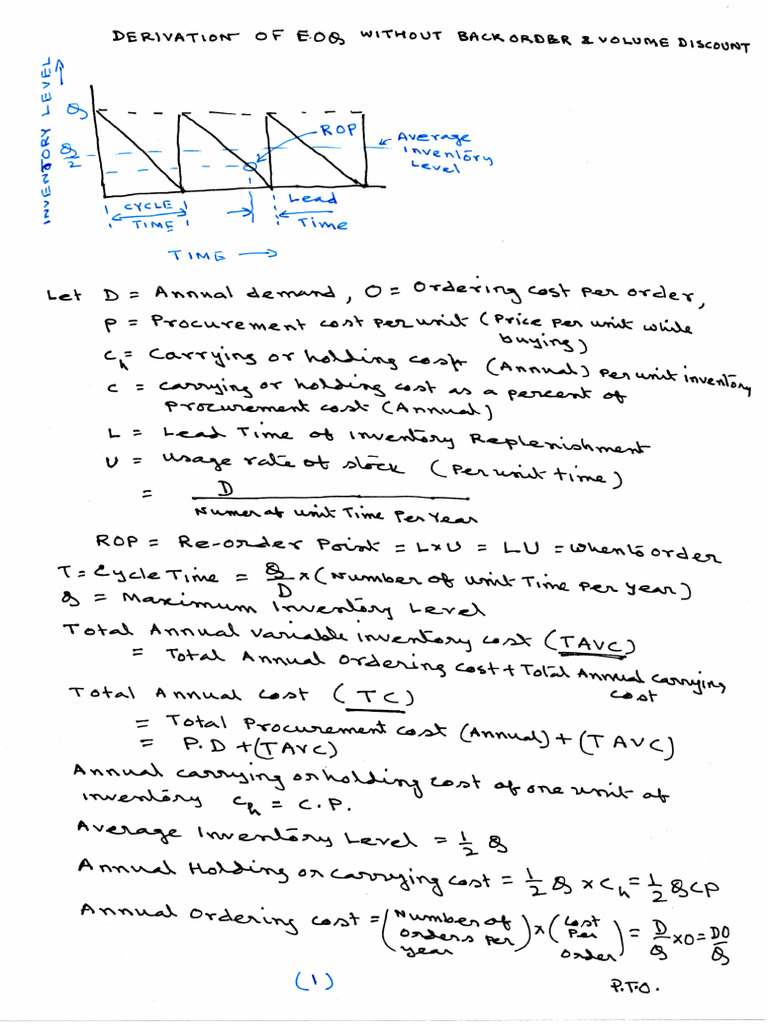 DERIVATION OF EOQ WITHOUT BACKORDER & VOLUME DISCOUNT
INVENTORY LEVEL
Q
Q/2
ROP
Average
Inventory
Level
CYCLE
TIME
Lead
Time
TIME
Let D = Annual demand, O = Ordering cost per order,
P = Procurement cost per unit (Price per unit while
buying)
Ch = Carrying or holding cost (Annual) per unit inventory
C = carrying or holding cost as a percent of
procurement cost (Annual)
L = Lead Time of Inventory Replenishment
U = usage rate of stock (per unit time)
= D
Numer of unit Time Per Year
ROP = Re-order Point = L×U = LU = when to order
T = Cycle Time = Q/D × (Number of unit Time per year)
Q = Maximum Inventory Level
Total Annual variable inventory cost (TAVC)
= Total Annual Ordering cost + Total Annual carrying
cost
Total Annual cost (TC)
= Total Procurement cost (Annual) + (TAVC)
= P.D + (TAVC)
Annual carrying or holding cost of one unit of
inventory Ch = C.P.
Average Inventory Level = 1/2 Q
Annual Holding or carrying cost = 1/2 Q × Ch = 1/2 QCP
Annual Ordering cost = (Number of orders per year) × (Cost Per Order) = D/Q × O = DO/Q
(1)
P.T.O.